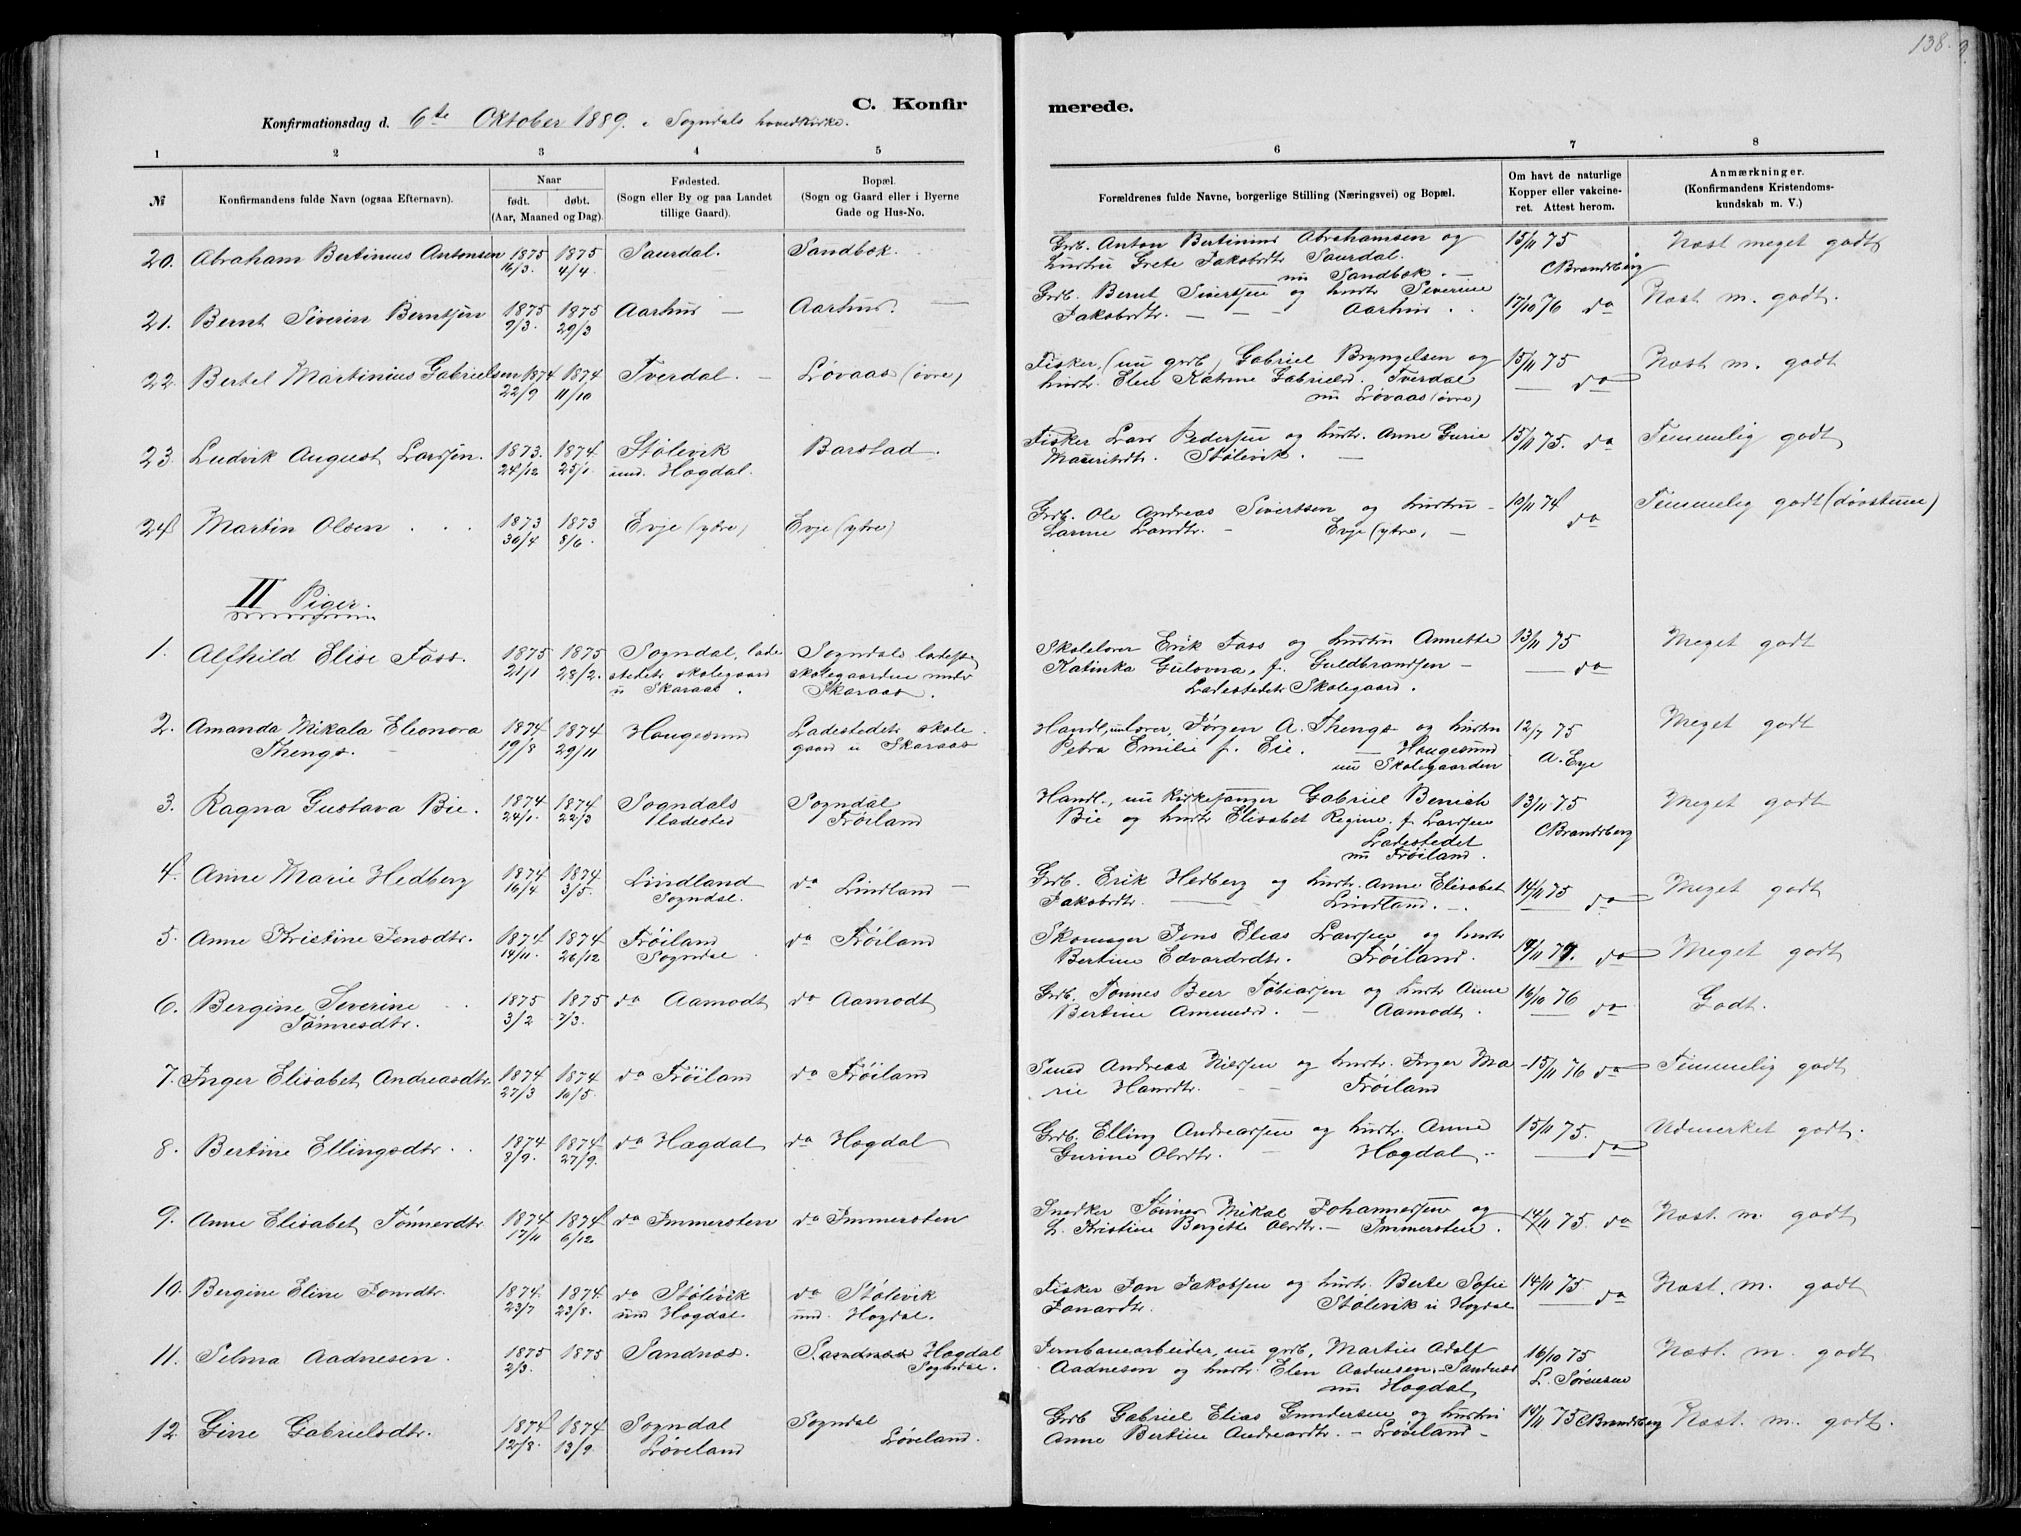 138.
C. Konfirmerede.
Konfirmationsdag d. 6te Oktober 1889. i Sogndals hovedkirke.
1 2 3 4 5 6 7 8
№ Konfirmandens fulde Navn (ogsaa Efternavn). Naar født. døbt. (Aar, Maaned og Dag). Fødested. (Sogn eller By og paa Landet tillige Gaard). Bopæl. (Sogn og Gaard eller i Byerne Gade og Hus-No. Forældrenes fulde Navne, borgerlige Stilling (Næringsvei) og Bopæl. Om havt de naturlige Kopper eller vakcineret. Attest herom. Anmærkninger. (Konfirmandens Kristendomskundskab m. V.)
20. Abraham Bertinius Antonsen 1875 1875 Saurdal. Sandbæk. Grb. Anton Bertinius Abrahamsen og 15/11 75 Næst meget godt
16/3. 4/4. hustru Grete Jakobsdtr Saurdal. CBrandsberg
nu Sandbæk. —
21. Bernt Siverin Berntsen 1875 1875 Aarhus — Aarhus. — Grb. Bernt Sivertsen og hustr. Severine 17/10 76 do Næst m. godt.
9/3. 29/3 Jakobsdtr. — — — Aarhus . .
22. Bertel Martinius Gabrielsen 1874 1874 Tverdal. — Løvaas (øvre) Fisker, (nu grb) Gabriel Bryngelsen og 15/11 75 Næst m. godt
22/9 11/10 hustr. Elen Katrine Gabrielsd. Tverdal do
nu Løvaas (øvre)
23. Ludvik August Larssen. 1873. 1874. Stølevik Barstad. Fisker Lars Pedersen og hustr. Anne Gurie 15/11 75. do Temmelig godt
24/12 25/1. und. Hægdal. Mauritsdtr. Stølevik. —
24 Martin Olsen . . 1873 1873 Evje (ytre) Evje (ytre) Grb. Ole Andreas Sivertsen og hustru 10/11 74 Temmelig godt (døvstum)
30/4 8/6. Larsine Larsdtr. — Evje (ytre) — do
II Piger.
1. Alfhild Elise Foss. 1875 1875 Sogndal, lade Sogndals ladest Skolelærer Erik Foss og hustru Annette 13/11 75 Meget godt
21/1 28/2. stedets skolegaard skolegaarden under Katinka Gulovna, f. Guldbrandsen — do
u Skaraas. Skaraas. Ladestedets Skolegaard.
2. Amanda Mikala Eleonora 1874 1874 Haugesund Ladestedets skole Handl., nu lærer, Jørgen A. Thengs og hustru 12/7 75 Meget godt
Thengs. — 19/8 29/11 gaard u Skaraas Petra Emilie f. Eie. — Haugesund A. Eye
nu Skolegaarden
3. Ragna Gustava Bie. 1874 1874 Sogndals Sogndal Handl., nu Kirkesanger Gabriel Benich 13/11 75 Meget godt
24/1. 22/3 ladested Frøiland Bie og hustr Elisabet Regine f. Larssen CBrandsberg
Ladestedet
nu Frøiland.
4. Anne Marie Hedberg 1874 1874. Lindland do Lindland — Grb. Erik Hedberg og hustr. Anne Elisabet 14/11 75 Meget godt
16/4. 3/5. Sogndal. Jakobsdtr. — Lindland. — do
5. Anne Kristine Jensdtr. 1874 1874 Frøiland do Frøiland Skomager Jens Elias Larssen og hustr 14/11 77. do Meget godt
14/11. 26/12 Sogndal Bertine Edvardsdtr. Frøiland.
6. Bergine Severine 1875 1875 do Aamodt do Aamodt Grb. Tønnes Beer Tobiassen og hustr Anne 16/10 76 do Godt.
Tønnesdtr. 3/2 7/3. Bertine Amundsd. — Aamodt.
7. Inger Elisabet Andreasdtr. 1874 1874 do Frøiland do Frøiland Smed Andreas Nilssen og hustr. Inger Ma 15/11 76 do Temmelig godt
27/3 10/5. rie Hansdtr. — Frøiland
8. Bertine Ellingsdtr. . 1874 1874 do Hægdal do Hægdal Grb. Elling Andreassen og hustr. Anne 15/11 75. Udmerket godt.
8/9. 27/9. Gurine Olsdtr. Hægdal . do
9. Anne Elisabet Tønnesdtr 1874 1874 do Immersten do Immersten Snedker Tønnes Mikal Johannessen og 14/11 75. do Næst. m. godt
17/11 6/12. h. Kristine Bergitte Olsdtr. — Immersten.
10. Bergine Eline Jonsdtr. 1874. 1874. do Stølevik do Stølevik Fisker Jon Jakobsen og hustr. Berte Sofie 14/11 75. do Næst. m. godt
23/7 23/8. und Hægdal und. Hægdal. Jonasdtr. Stølevik u Hægdal
11. Selma Aadnesen . 1875 1875 Sandnæs. Sandnæs Hægdal Jernbanearbeider, nu grb, Martin Adolf 16/10 75 Næst. m. godt
2/3. Sogndal. Aadnesen og hustr. Elen Aadnesen. — Sandnæs L. Sørensen
nu Hægdal
12. Gine Gabrielsdtr. 1874 1874 Sogndal Sogndal Grb Gabriel Elias Gundersen og hustru 14/11 75 CBrandsberg Næst. m. godt.
12/8. 13/9. Løveland Løveland. Anne Bertine Andreasdtr. — Løveland —